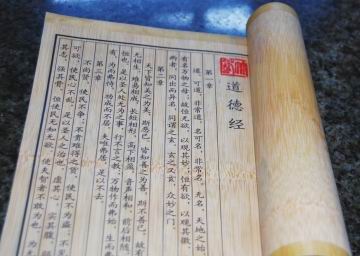 道德经
第一章
道，可道，非常道。名可名，非常名。无名，天地之始
有名万物之母，故恒无欲，以观其妙；恒有欲，以观其徼
两者，同出而异名，同谓之玄，玄之又玄，众妙之门
第二章
天下皆知美之为美，斯恶已；皆知善之为善，斯不善已。故有
无相生，难易相成，长短相形，高下相盈，音声相和，前后相随
恒也。是以圣人处无为之事，行不言之教；万物作而弗始，生而弗
有，为而弗恃，功成而不居。夫唯弗居，是以不去。
第三章
不尚贤，使民不争；不贵难得之货，使民不为盗；不见
可欲，使民心不乱。是以圣人之治也，虚其心，实其腹，弱
其志，强其骨。恒使民无知无欲，使夫智者不敢为也。为无